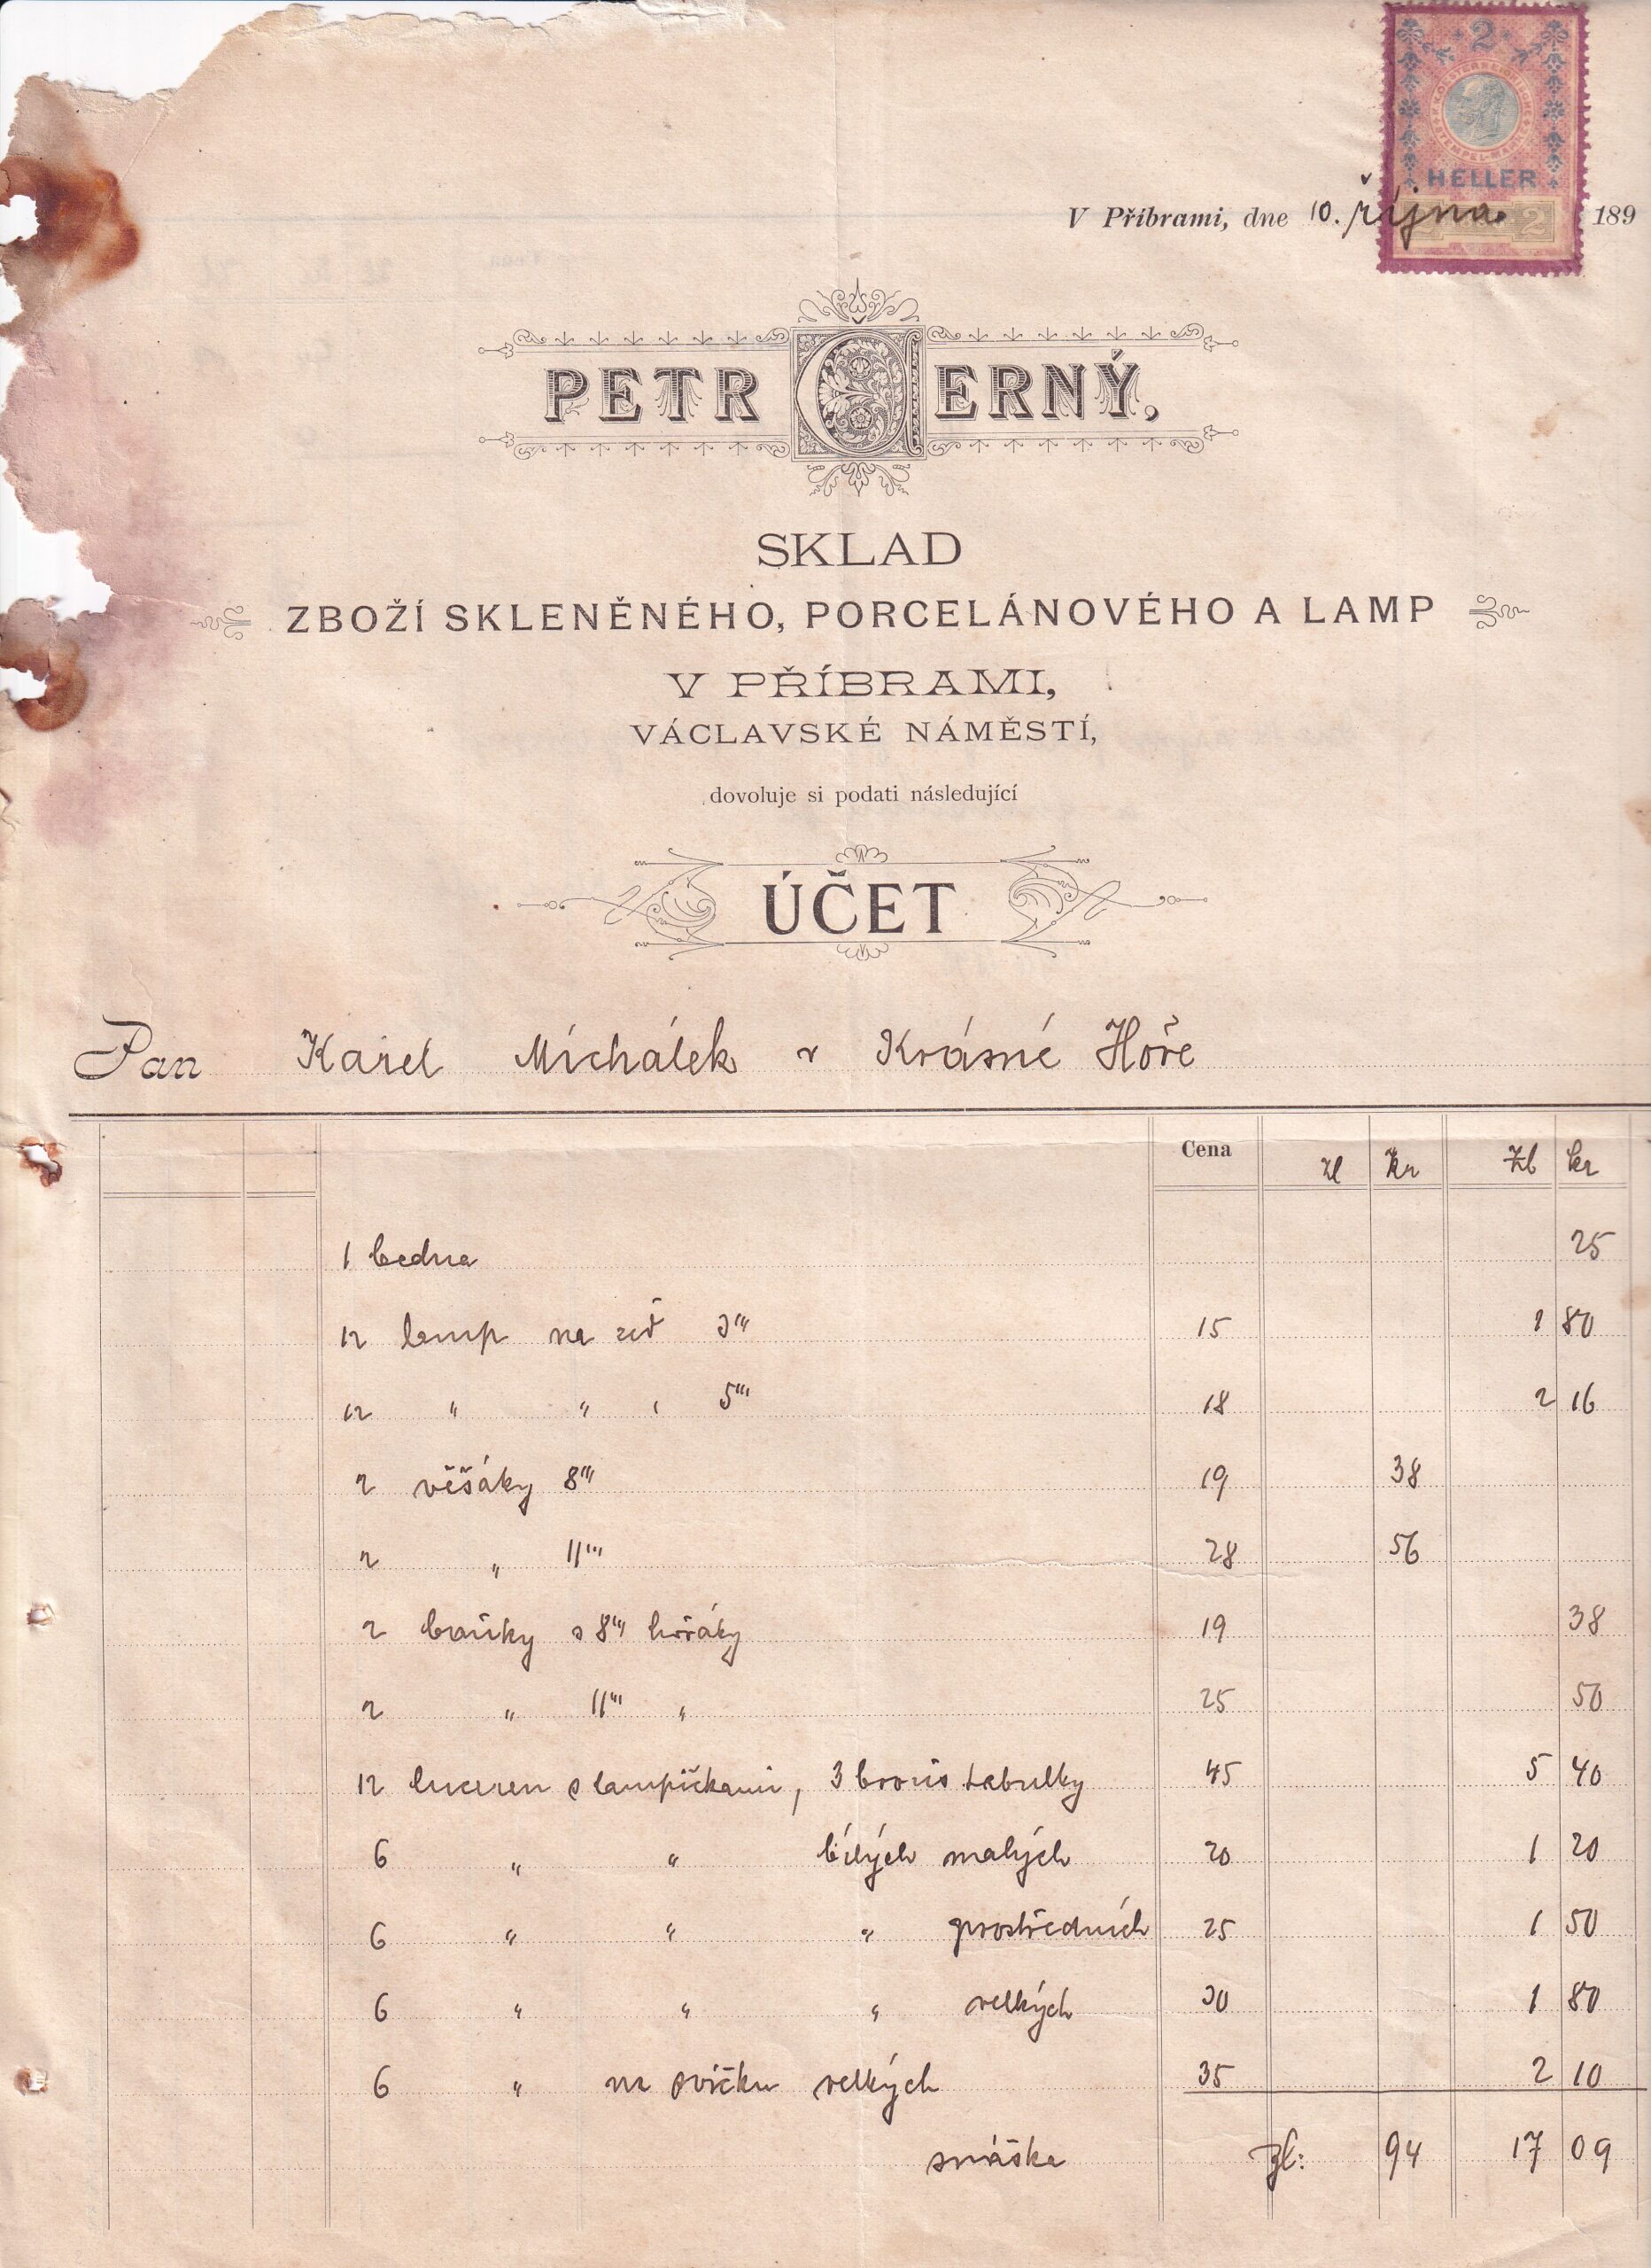 2
K.K. OESTERREICHISCHE STEMPEL-MARKE
HELLER
2
V Příbrami, dne 10. října 189
PETR ČERNÝ,
SKLAD
ZBOŽÍ SKLENĚNÉHO, PORCELÁNOVÉHO A LAMP
V PŘÍBRAMI,
VÁCLAVSKÉ NÁMĚSTÍ,
dovoluje si podati následující
ÚČET
Pan Karel Míchálek v Krásné Hoře
Cena Zl Kr Zl kr
1 bedna 25
12 lamp na zeď 3''' 15 1 80
12 " " " 5''' 18 2 16
2 věšáky 8''' 19 38
2 " 11''' 28 56
2 baňky s 8''' hořáky 19 38
2 " 11''' " 25 50
12 luceren s lampičkami, 3 tabulky 45 5 40
6 " " bílých malých 20 1 20
6 " " " prostředních 25 1 50
6 " " " velkých 30 1 80
6 " na svíčku velkých 35 2 10
snáška zl: 94 17 09